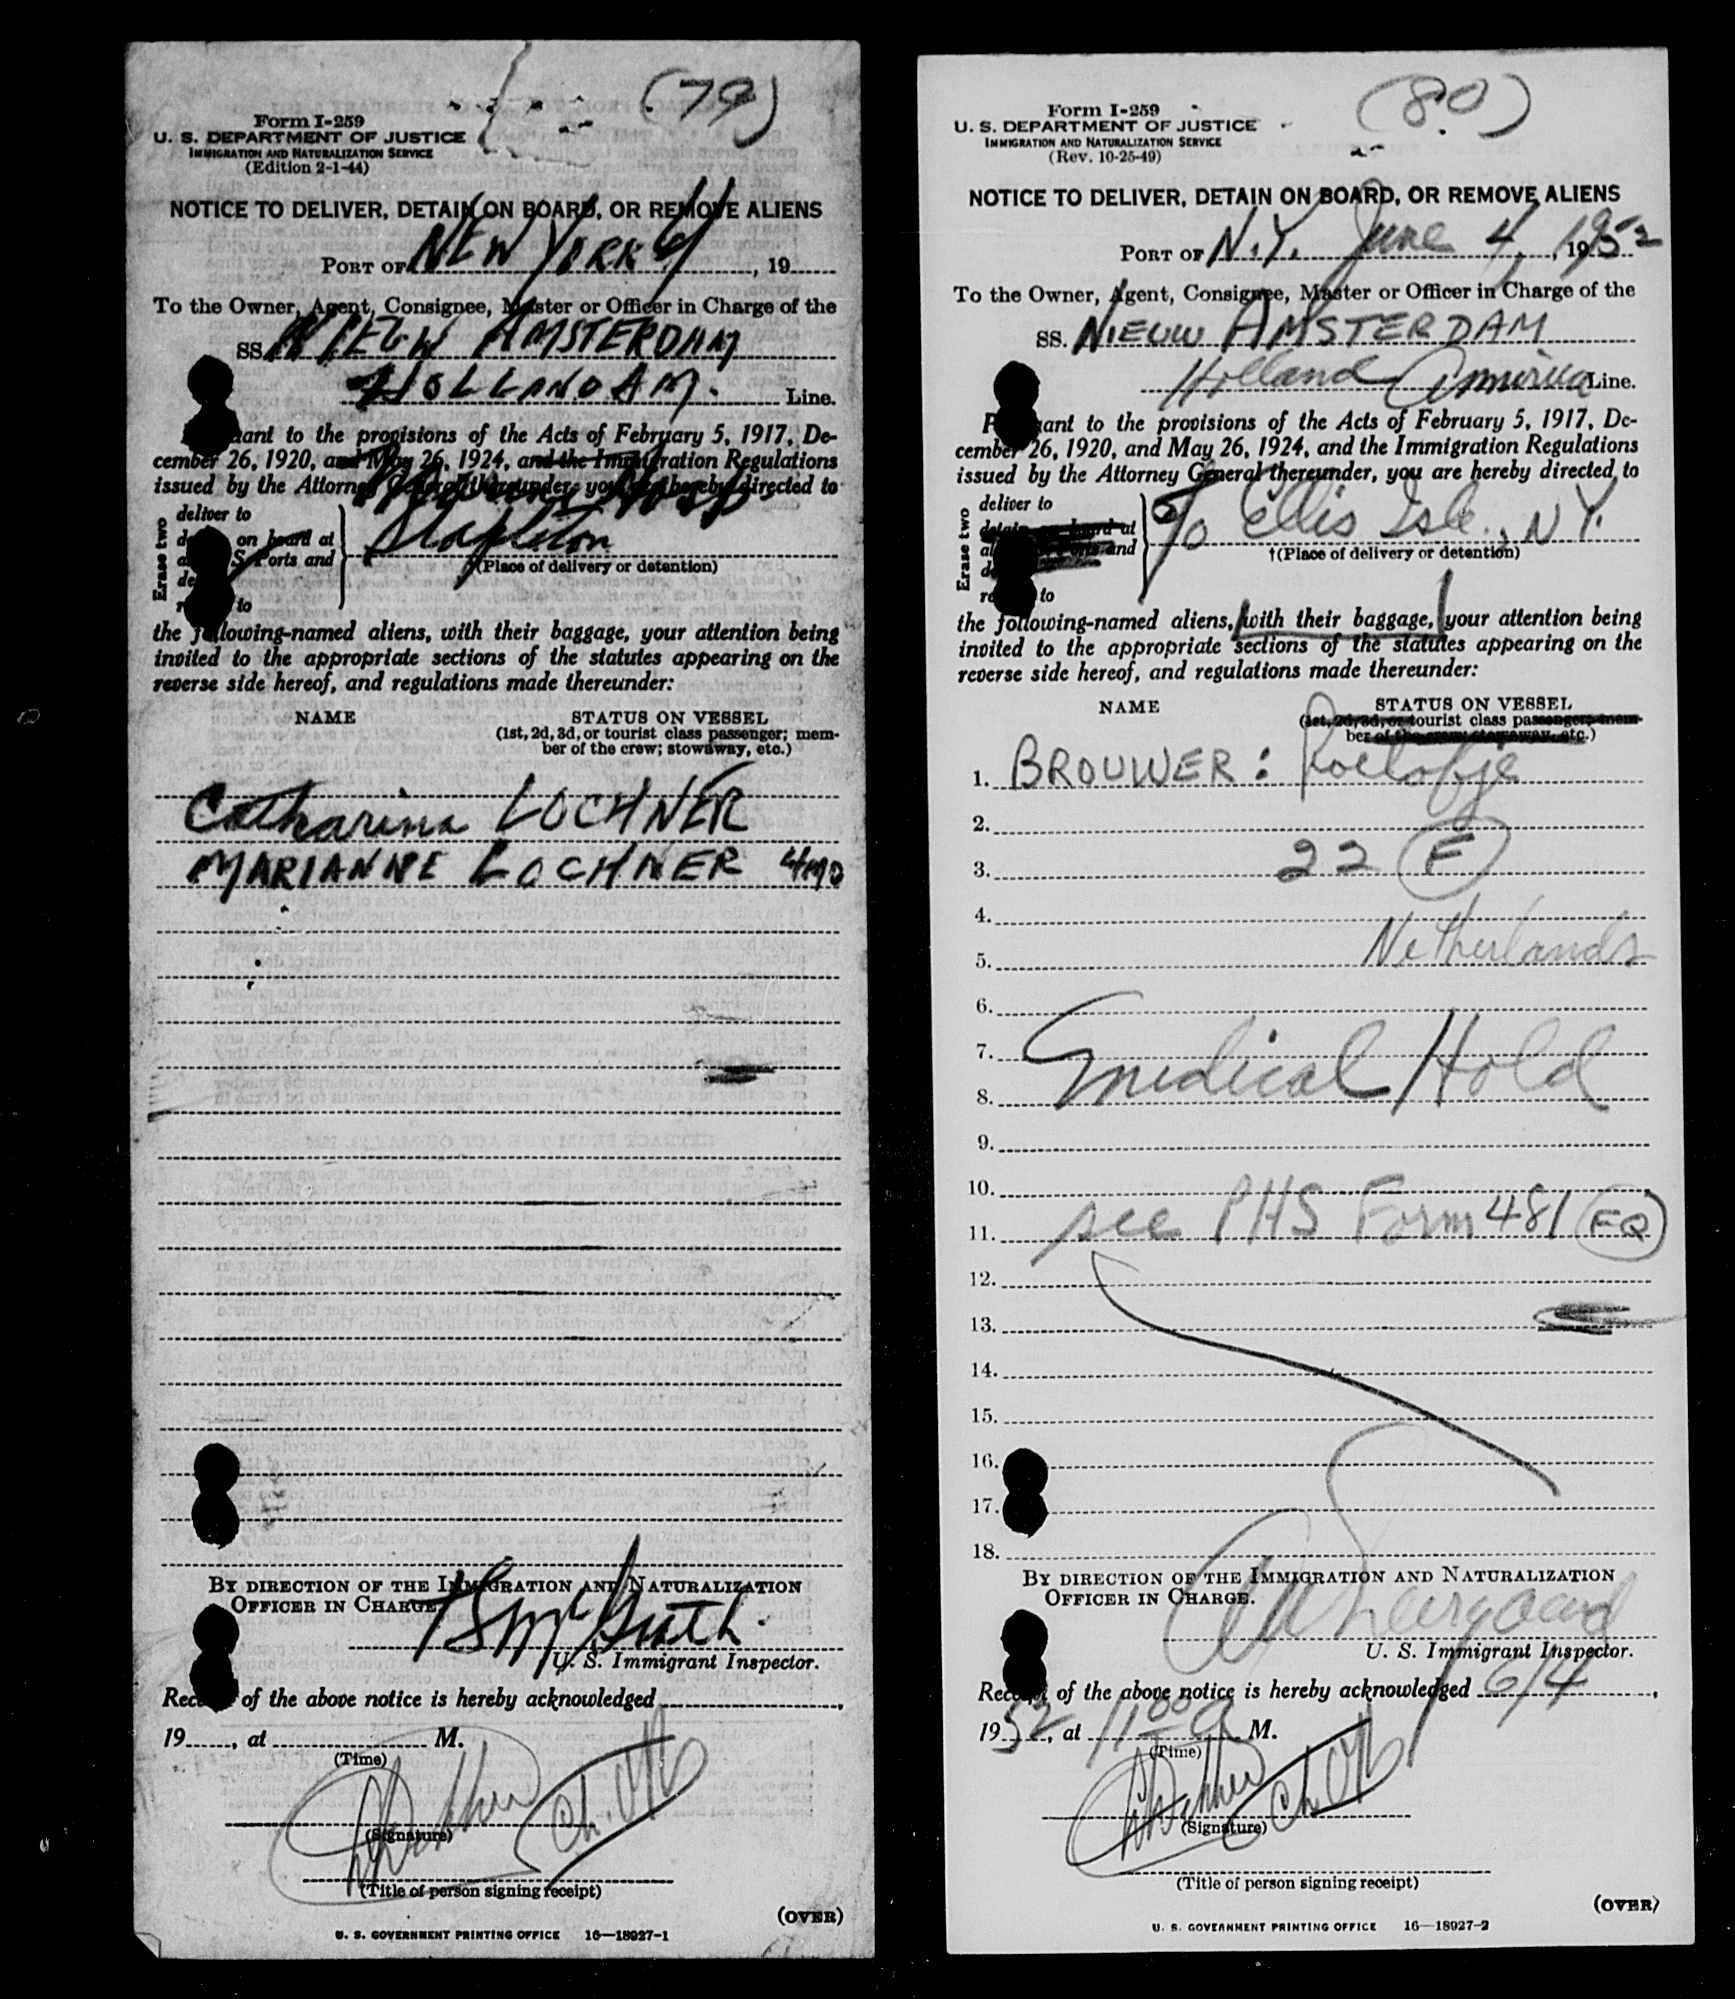 (79)
Form I-259
U. S. DEPARTMENT OF JUSTICE
IMMIGRATION AND NATURALIZATION SERVICE
(Edition 2-1-44)
NOTICE TO DELIVER, DETAIN ON BOARD, OR REMOVE ALIENS
PORT OF NEW YORK, 19
To the Owner, Agent, Consignee, Master or Officer in Charge of the
SS NIEUW AMSTERDAM
HOLLAND AM. Line.
uant to the provisions of the Acts of February 5, 1917, De-
cember 26, 1920, and May 26, 1924, and the Immigration Regulations
issued by the Attorney General thereunder, you are hereby directed to
Erase two
deliver to
on board at
S. Ports and
to
Stapleton
(Place of delivery or detention)
the following-named aliens, with their baggage, your attention being
invited to the appropriate sections of the statutes appearing on the
reverse side hereof, and regulations made thereunder:
NAME
STATUS ON VESSEL
(1st, 2d, 3d, or tourist class passenger; mem-
ber of the crew; stowaway, etc.)
Catharina LOCHNER
MARIANNE LOCHNER 4mo
BY DIRECTION OF THE IMMIGRATION AND NATURALIZATION
OFFICER IN CHARGE.
U. S. Immigrant Inspector.
Receipt of the above notice is hereby acknowledged ,
19 , at M.
(Time)
(Signature)
Ch. Off
(Title of person signing receipt)
(OVER)
U. S. GOVERNMENT PRINTING OFFICE 16—18927-1
(80)
Form I-259
U. S. DEPARTMENT OF JUSTICE
IMMIGRATION AND NATURALIZATION SERVICE
(Rev. 10-25-49)
NOTICE TO DELIVER, DETAIN ON BOARD, OR REMOVE ALIENS
PORT OF N.Y. June 4, 1952
To the Owner, Agent, Consignee, Master or Officer in Charge of the
SS. NIEUW AMSTERDAM
Holland America Line.
uant to the provisions of the Acts of February 5, 1917, De-
cember 26, 1920, and May 26, 1924, and the Immigration Regulations
issued by the Attorney General thereunder, you are hereby directed to
Erase two
deliver to
detain on board at
and
to
To Ellis Isle., N.Y.
†(Place of delivery or detention)
the following-named aliens, with their baggage, your attention being
invited to the appropriate sections of the statutes appearing on the
reverse side hereof, and regulations made thereunder:
NAME
STATUS ON VESSEL
(1st, 2d, 3d, or tourist class passenger; mem-
ber of the crew; stowaway, etc.)
1. BROUWER: Roelofje
2.
3. 22 F
4.
5. Netherlands
6.
7.
8. Medical Hold
9.
10.
11. see PHS Form 481 EQ
12.
13.
14.
15.
16.
17.
18.
BY DIRECTION OF THE IMMIGRATION AND NATURALIZATION
OFFICER IN CHARGE.
U. S. Immigrant Inspector.
Receipt of the above notice is hereby acknowledged 6/4,
1952, at 11 00 a M.
(Time)
(Signature)
Ch. Off
(Title of person signing receipt)
(OVER)
U. S. GOVERNMENT PRINTING OFFICE 16—18927-2